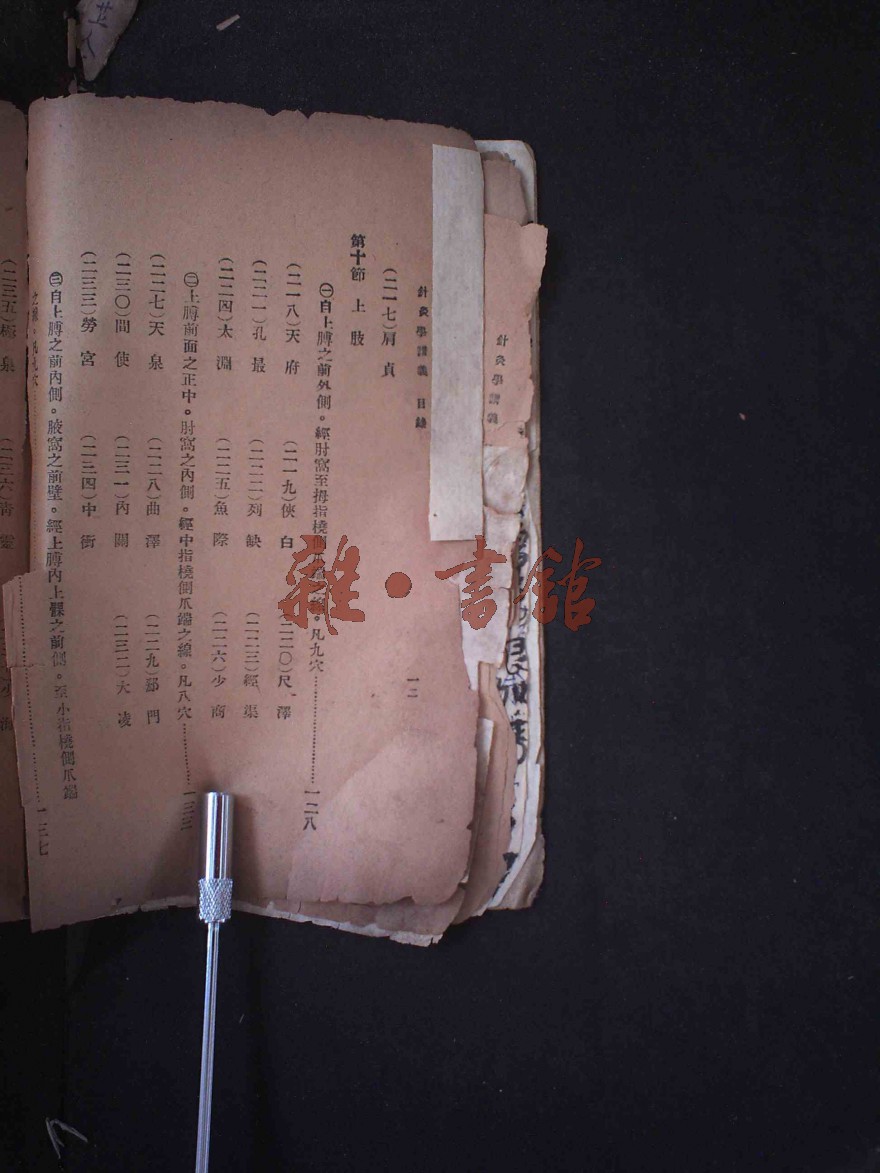 針灸學講義
針灸學講義 目錄 一二
(二一七)肩貞
第十節 上肢
㊀自上膊之前外側。經肘窩至拇指橈側爪端之線。凡九穴…………一二八
(二一八)天府 (二一九)俠白 (二二〇)尺澤
(二二一)孔最 (二二二)列缺 (二二三)經渠
(二二四)太淵 (二二五)魚際 (二二六)少商
㊁上膊前面之正中。肘窩之內側。經中指橈側爪端之線。凡八穴…………一三三
(二二七)天泉 (二二八)曲澤 (二二九)郄門
(二三〇)間使 (二三一)內關 (二三二)大凌
(二三三)勞宮 (二三四)中衝
㊂自上膊之前內側。腋窩之前壁。經上膊內上髁之前側。至小指橈側爪端
之線。凡九穴…………一三七
(二三五)極泉 (二三六)青靈
雜·書館